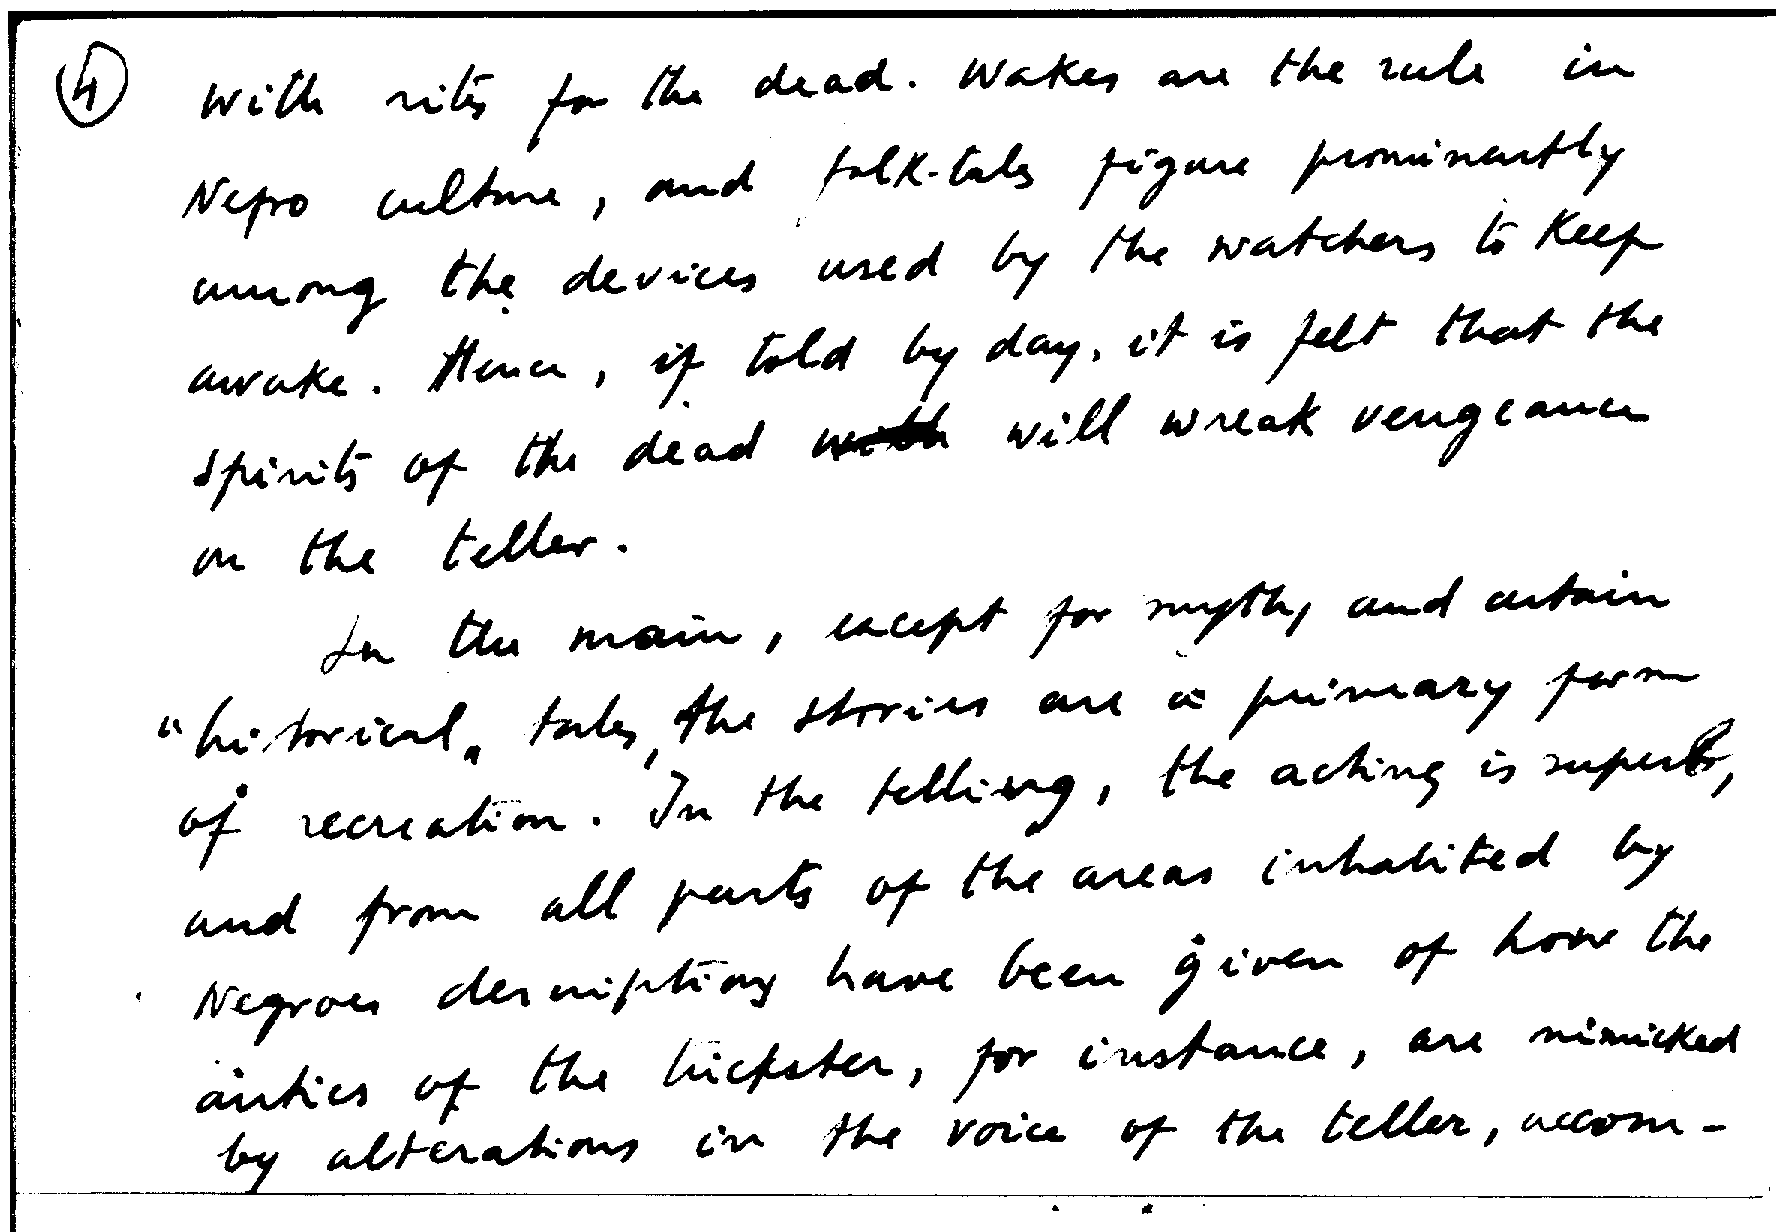 4 with rites for the dead. Wakes are the rule in
Negro culture, and folk-tales figure prominently
among the devices used by the watchers to keep
awake. Hence, if told by day, it is felt that the
spirits of the dead with will wreak vengeance
on the teller.
In the main, except for myths and certain
"historical" tales, the stories are a primary form
of recreation. In the telling, the acting is superb,
and from all parts of the areas inhabited by
Negroes descriptions have been given of how the
antics of the trickster, for instance, are mimicked
by alterations in the voice of the teller, accom-